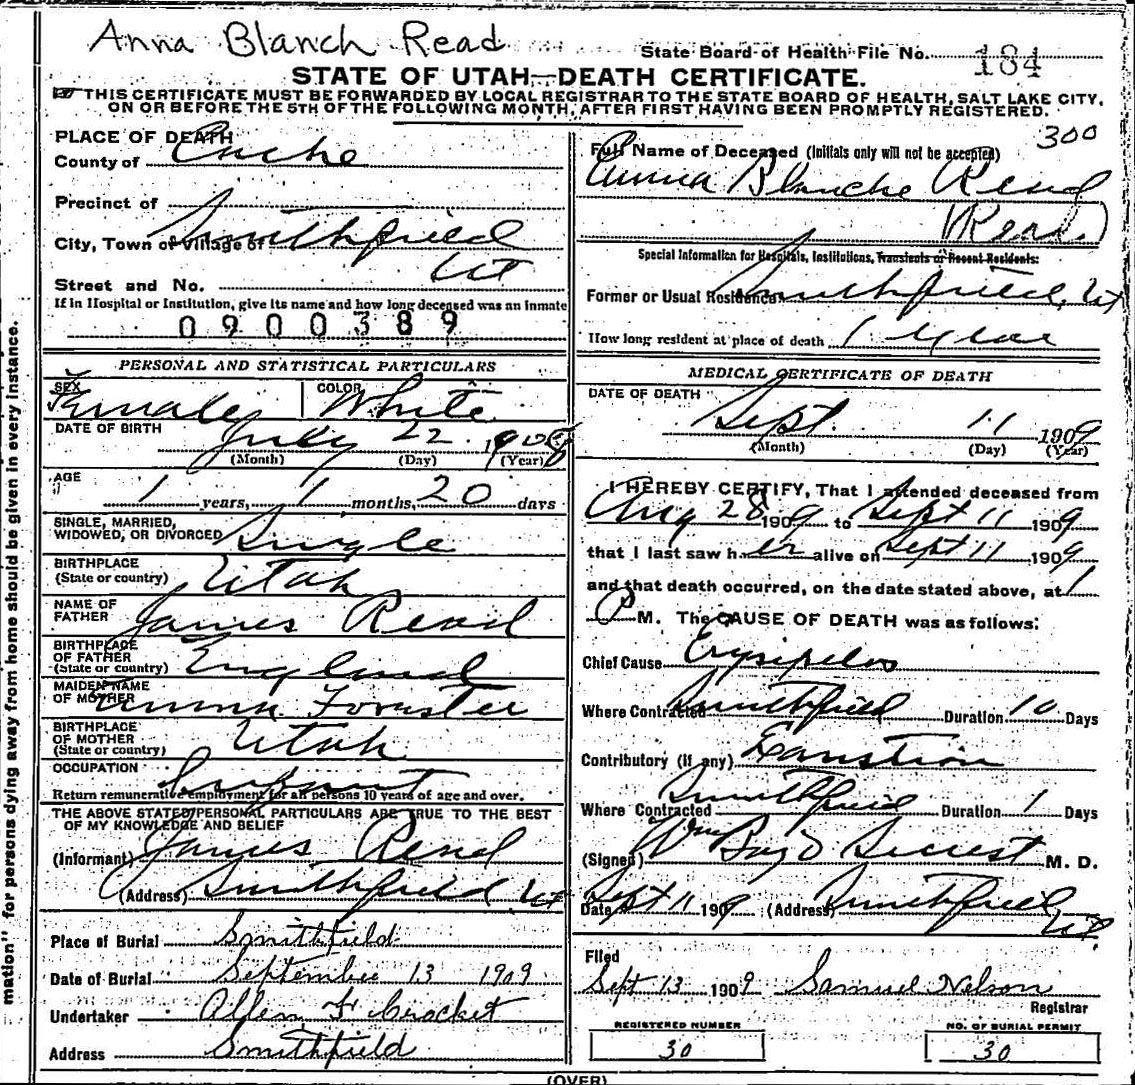 Anna Blanch Read
State Board of Health File No. 184
STATE OF UTAH—DEATH CERTIFICATE.
THIS CERTIFICATE MUST BE FORWARDED BY LOCAL REGISTRAR TO THE STATE BOARD OF HEALTH, SALT LAKE CITY,
ON OR BEFORE THE 5TH OF THE FOLLOWING MONTH, AFTER FIRST HAVING BEEN PROMPTLY REGISTERED.
PLACE OF DEATH
County of Cache
Precinct of
City, Town or Village of Smithfield
Ut
Street and No.
If in Hospital or Institution, give its name and how long deceased was an inmate
0900389
PERSONAL AND STATISTICAL PARTICULARS
SEX Female COLOR White
DATE OF BIRTH July 22 1908
(Month) (Day) (Year)
AGE 1 years, 1 months, 20 days
SINGLE, MARRIED,
WIDOWED, OR DIVORCED Single
BIRTHPLACE
(State or country) Utah
NAME OF
FATHER James Read
BIRTHPLACE
OF FATHER
(State or country) England
MAIDEN NAME
OF MOTHER Anna Forrster
BIRTHPLACE
OF MOTHER
(State or country) Utah
OCCUPATION Infant
Return remunerative employment for all persons 10 years of age and over.
THE ABOVE STATED PERSONAL PARTICULARS ARE TRUE TO THE BEST
OF MY KNOWLEDGE AND BELIEF
(Informant) James Read
(Address) Smithfield Ut
Place of Burial Smithfield
Date of Burial September 13 1909
Undertaker Allen F Crocket
Address Smithfield
300
Full Name of Deceased (Initials only will not be accepted)
Anna Blanche Read
(Read)
Special Information for Hospitals, Institutions, Transients or Recent Residents:
Former or Usual Residence Smithfield, Ut
How long resident at place of death 1 Year
MEDICAL CERTIFICATE OF DEATH
DATE OF DEATH
Sept. 11 1909
(Month) (Day) (Year)
I HEREBY CERTIFY, That I attended deceased from
Aug 28 1909 to Sept 11 1909
that I last saw her alive on Sept 11 1909
and that death occurred, on the date stated above, at 1
P M. The CAUSE OF DEATH was as follows:
Chief Cause Erysipelas
Where Contracted Smithfield Duration 10 Days
Contributory (if any) Exaustion
Where Contracted Smithfield Duration 1 Days
(Signed) Wm Boyd Secrest M. D.
Date Sept 11 1909 (Address) Smithfield
Ut.
Filed
Sept 13 1909 Samuel Nelson
Registrar
REGISTERED NUMBER
30
NO. OF BURIAL PERMIT
30
(OVER)
mation" for persons dying away from home should be given in every instance.